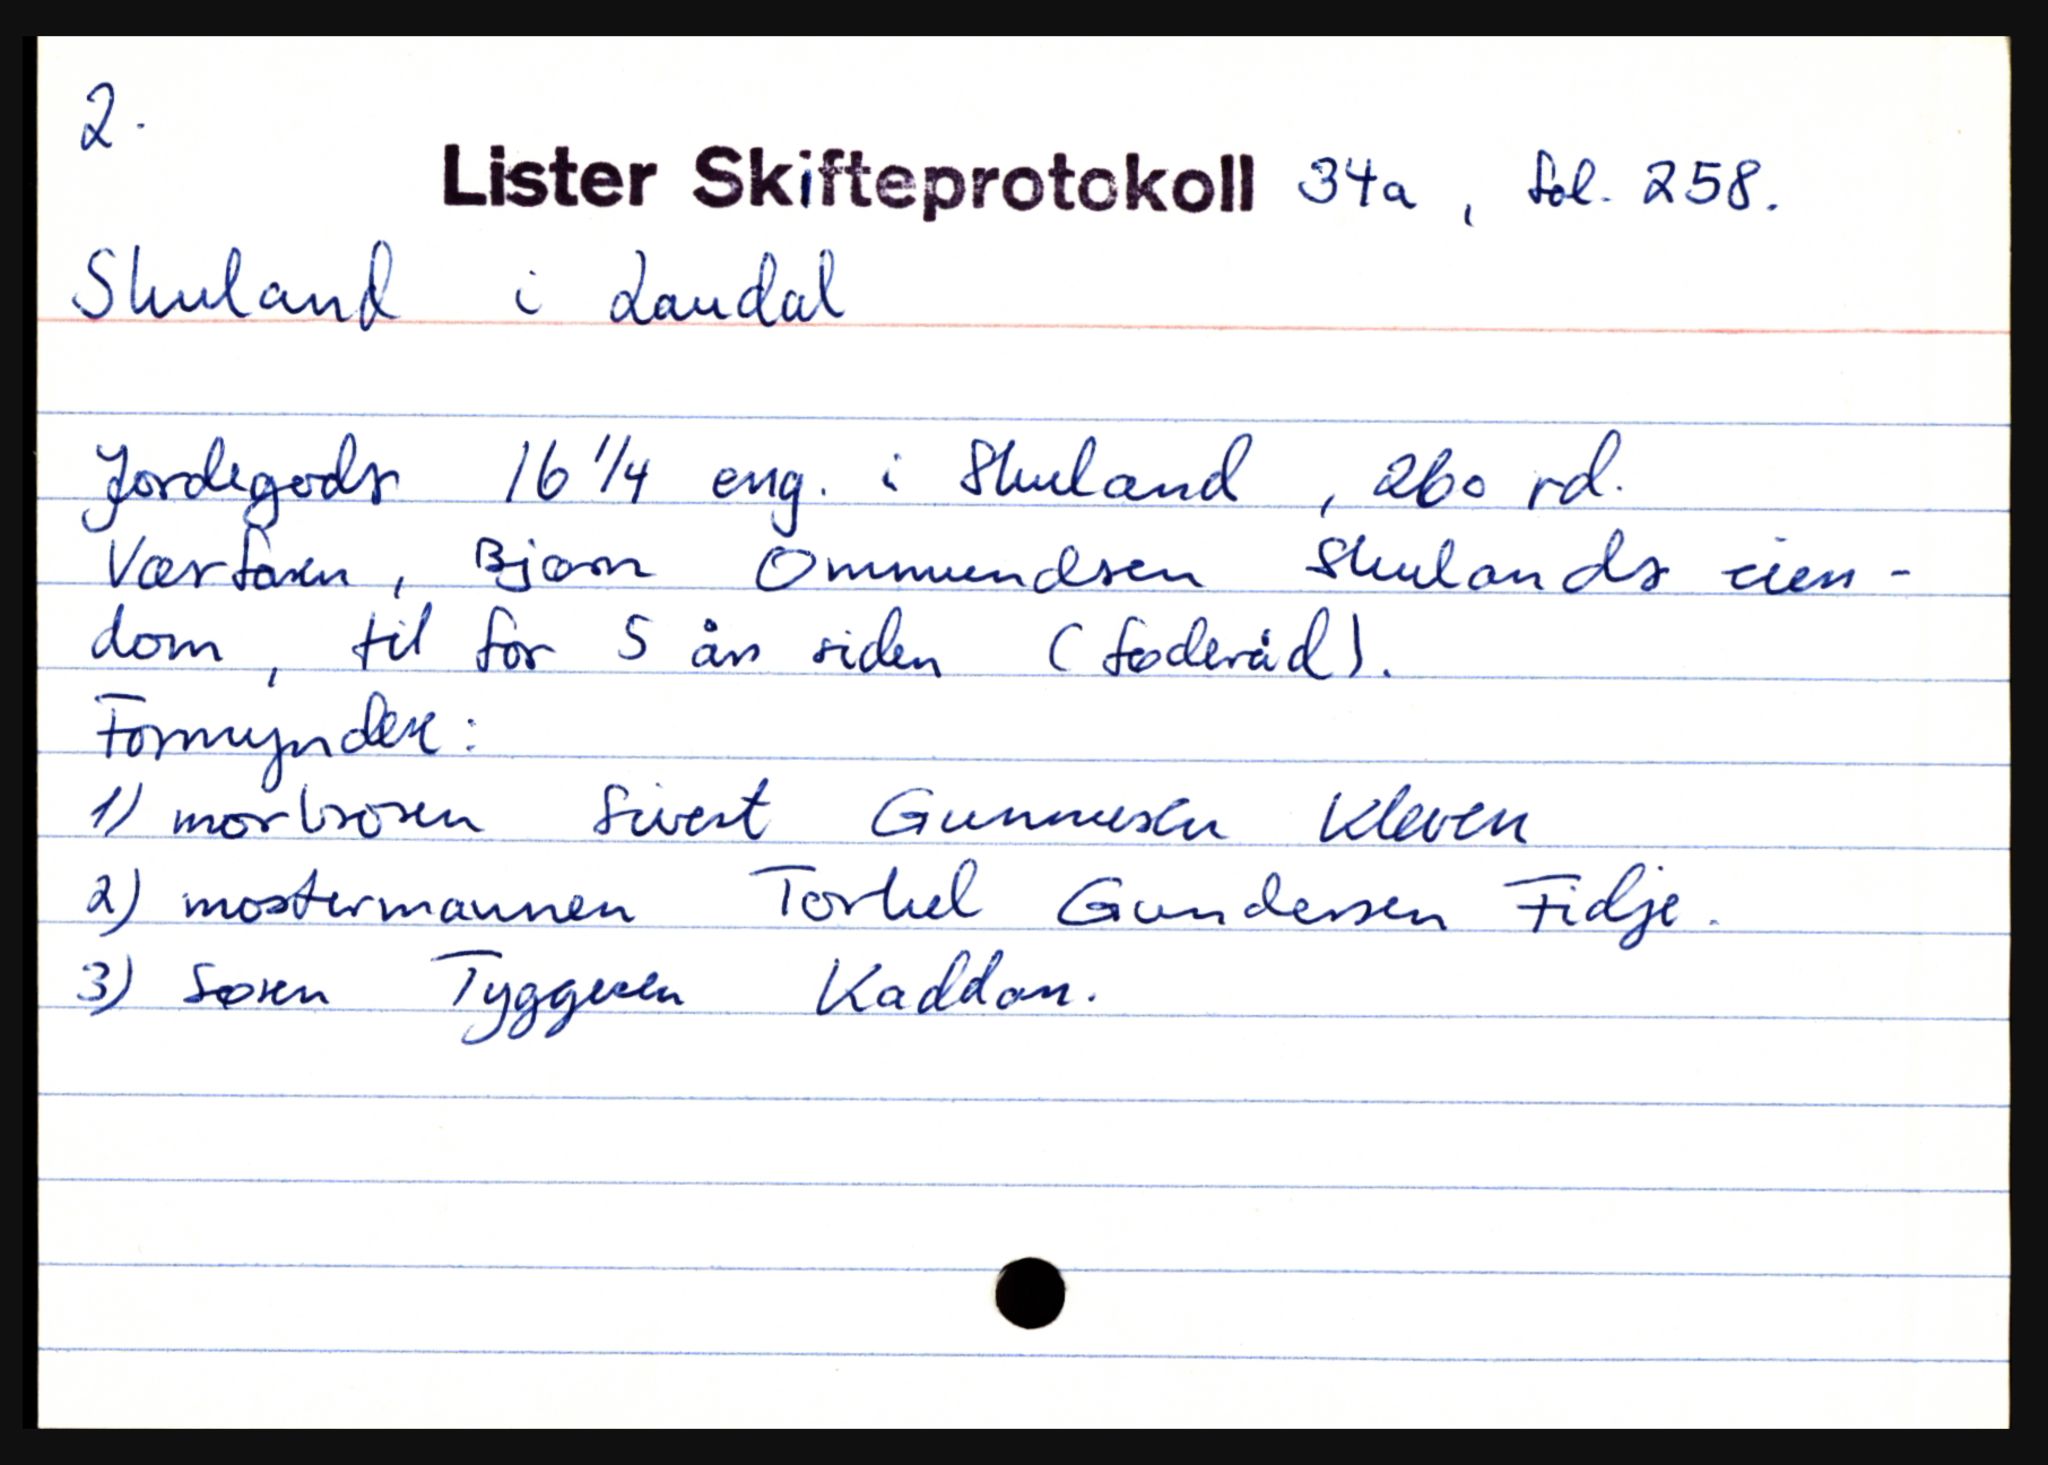 2.
Lister Skifteprotokoll 34a, fol. 258.
Skuland i Laudal
Jordegods 16 1/4 eng. i Skuland, 260 rd.
Værfaren, Bjørn Ommundsen Skulands eien-
dom, til for 5 år siden (føderåd).
Formyndere:
1) morbroren Sivert Gunnuesen Kleven
2) mostermannen Torkel Gundersen Fidje.
3) Søren Tyggesen Kaddan.